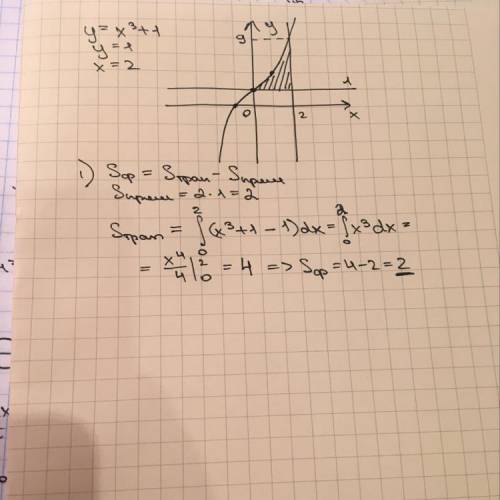 y = x³+1
y = 1
x = 2
y
9
1
0
2
x
1) Sф = Sтрап - Sпрям
Sпрям = 2·1 = 2
Sтрап = ∫₀² (x³+1-1)dx = ∫₀² x³dx =
= x⁴/4 |₀² = 4 => Sф = 4-2 = 2